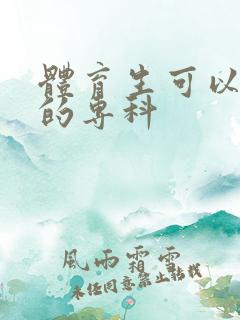 體育生可以
的專科
風雨霜雪
未経同意禁止転載